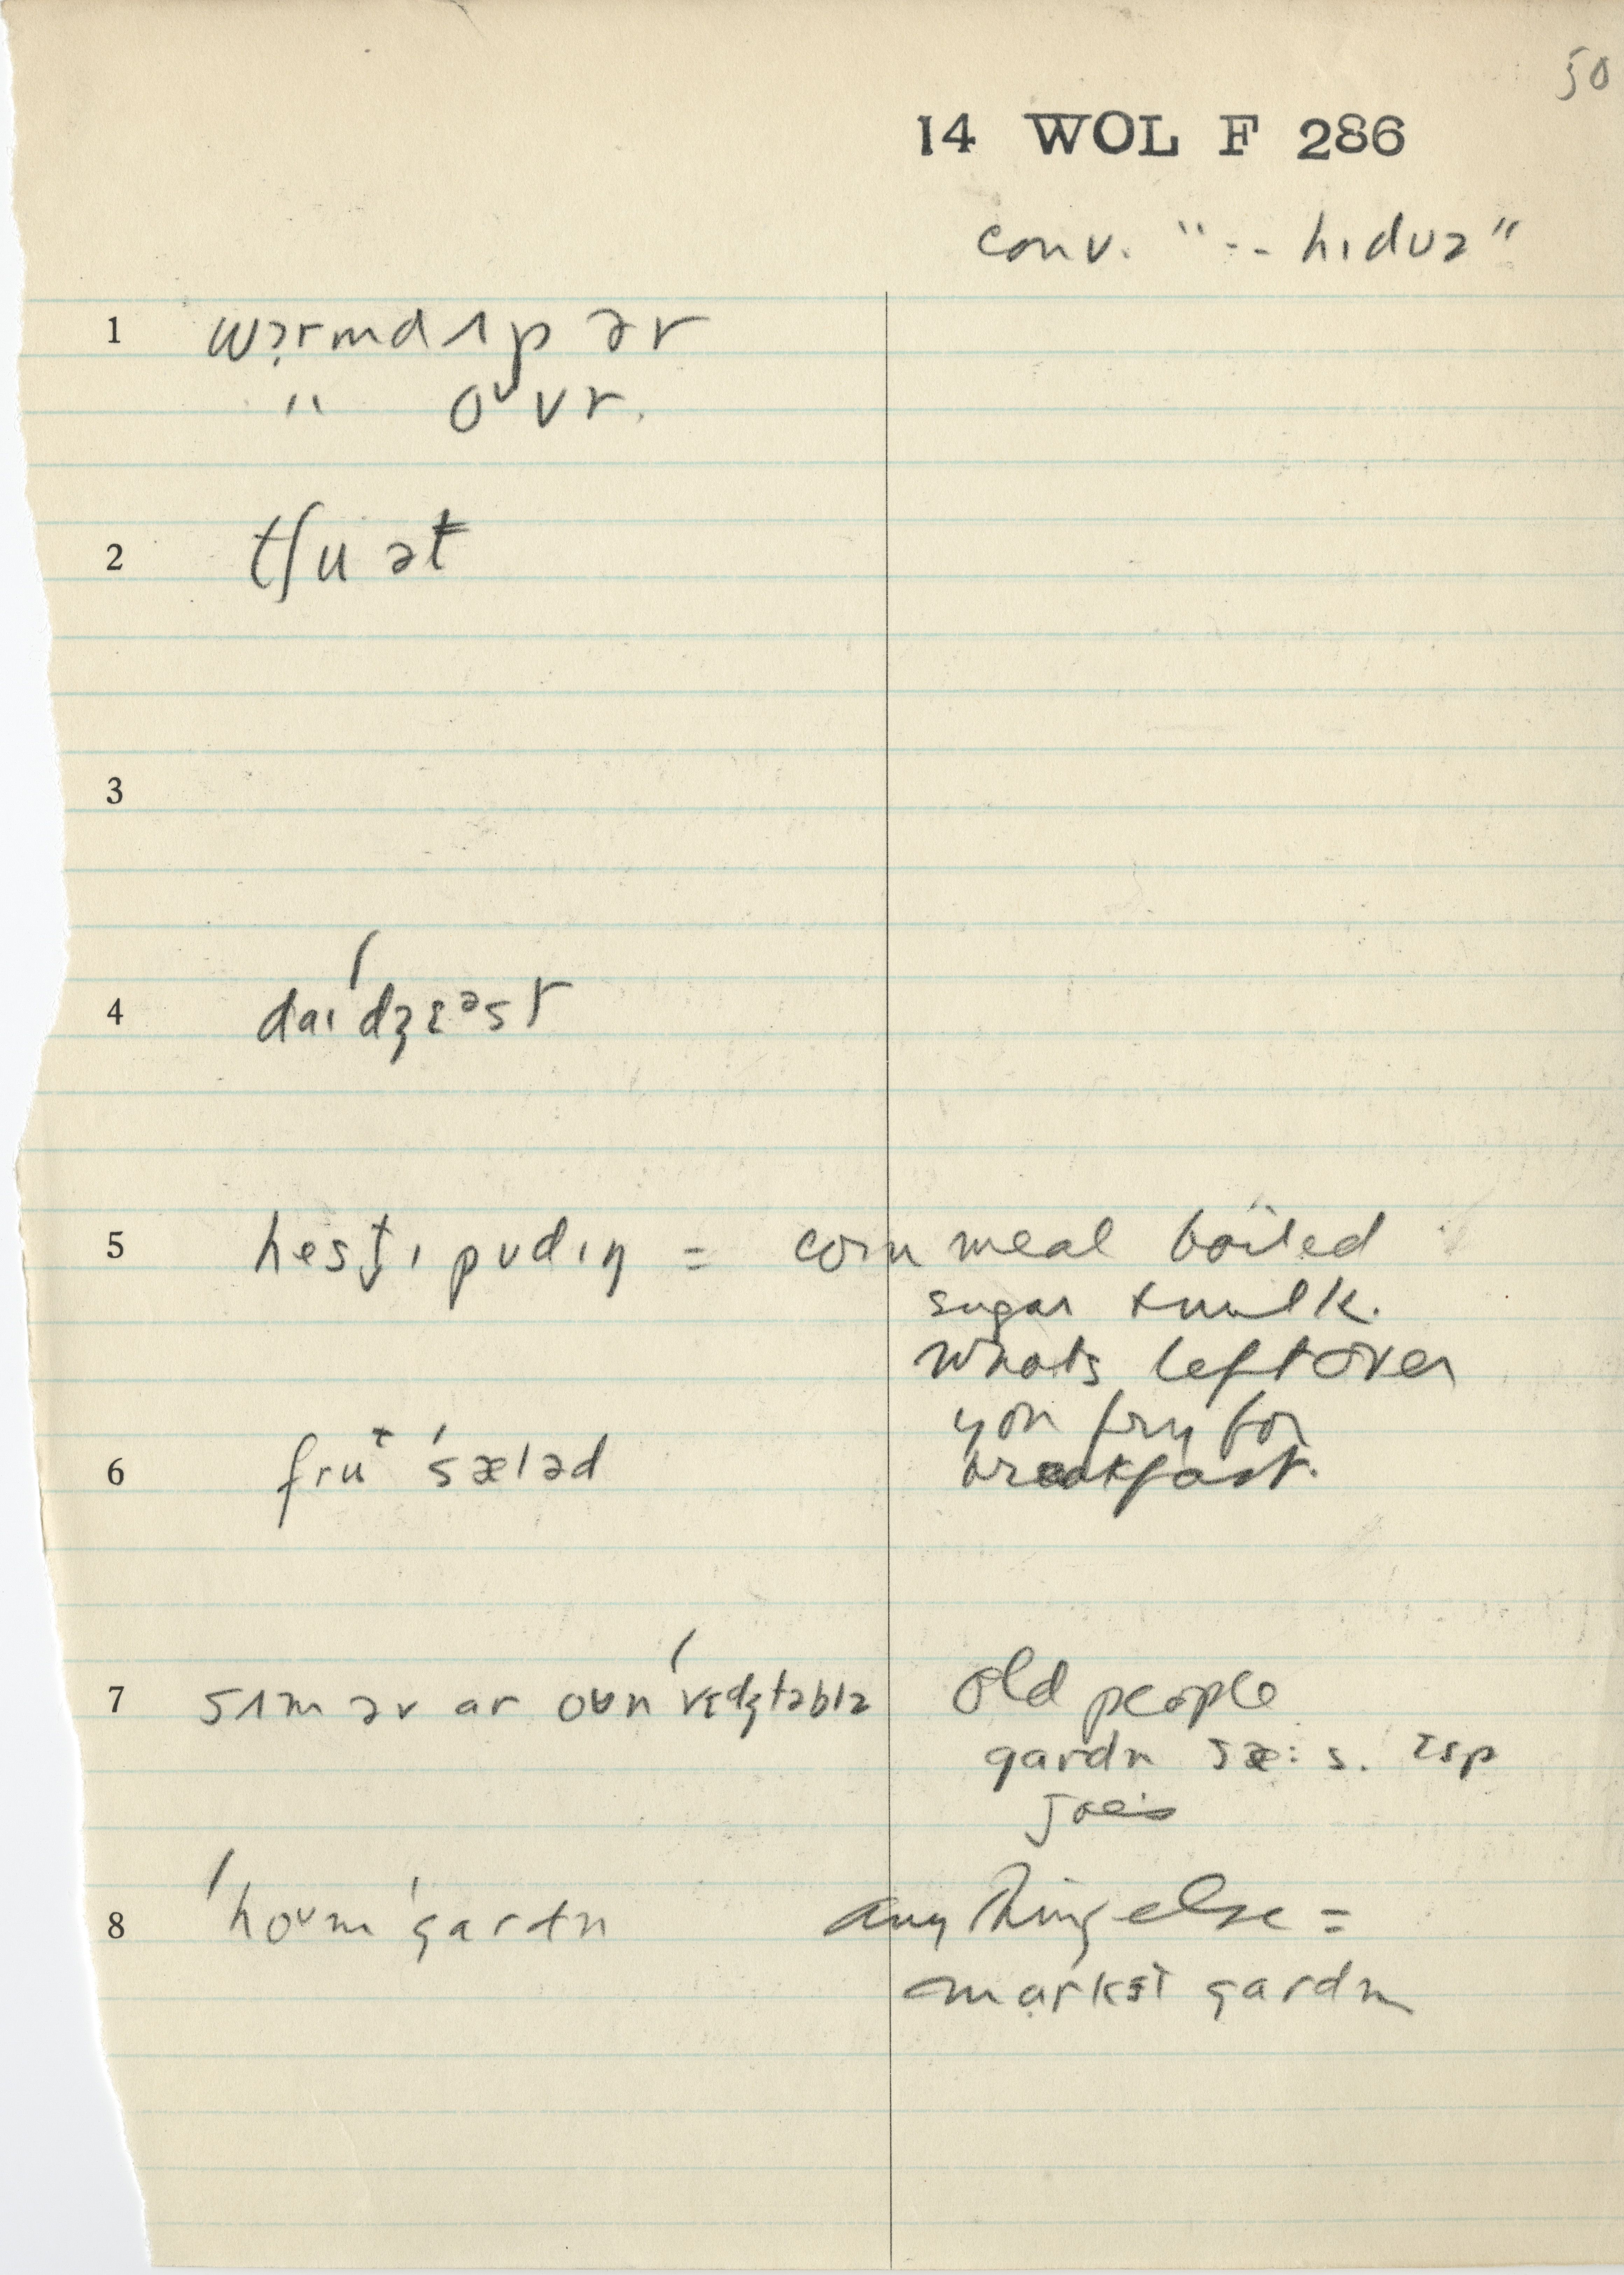 50
14 WOL F 286
conv. "-- hɪdʊz"
1 wɔrmd ʌp ər
" oᶷvr.
2 tʃu ət
3
4 daɪˈdʒɛᵊst
5 hestɪ pʊdɪŋ = corn meal boiled
sugar + milk.
whats left over
you fry for
breakfast.
6 fruᵗ ˈsæləd
7 sʌm əv ar oʊn ˈvɛdʒtəblz
old people
gardn sæ:s.
8 ˈhoᶷm ˈgardn
anything else =
markət gardn